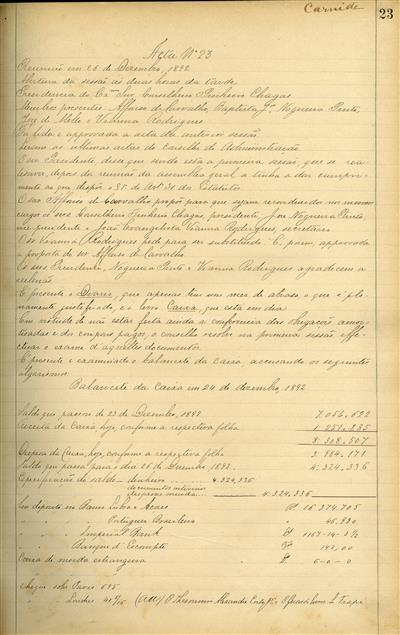 Carnide
23
Acta Nº 23
Reunião em 26 de Dezembro, 1892
Abertura da sessão ás duas horas da tarde
Presidencia do Exmo Snr Conselheiro Pinheiro Chagas
Membros presentes Affonso de Carvalho, Baptista Jor, Nogueira Pinto,
Jose de Mello e Vianna Rodrigues
Foi lida e approvada a acta da anterior sessão
as ultimas actas do Conselho de Administração
O snr Presidente disse que sendo esta a primeira sessão, que se rea
lisava, depois da reunião da assembléa geral, a tinha a dar cumpri-
mento ao que dispõe o § do artº 31 dos Estatutos
O snr Affonso de Carvalho propôz para que sejam reconduzidos nos mesmos
cargos os snrs Conselheiro Pinheiro Chagas, presidente, Jose Nogueira Pinto,
vice presidente e João Evangelista Vianna Rodrigues, secretario
O snr Vianna Rodrigues pede para ser substituido. É, porem, approvada
a proposta do snr Affonso de Carvalho.
Os snrs Presidente, Nogueira Pinto e Vianna Rodrigues agradecem a
reeleição
É presente o Diario, que apenas tem um mez de atraso o que é ple-
namente justificado, e o livro Caixa, que está em dia
Em virtude de não estar feita ainda a conferencia das obrigações amor-
tisadas e do coupon pago, o conselho resolve na primeira sessão effe-
ctuar o exame d'aquelles documentos.
É presente e examinado o balancete da caixa, accusando os seguintes
algarismos:
Balancete da Caixa em 24 de dezembro, 1892
Saldo que passou de 23 de Dezembro, 1892 7.056,692
Receita da Caixa, hoje, conforme a respectiva folha 1.251,835
8.308,507
Despeza da Caixa, hoje, conforme a respectiva folha 3.984,171
Saldo que passa para o dia 26 de Dezembro 1892 4.324,336
Especificação do saldo - dinheiro 4.324,336
documentos interinos
despezas miudas 4.324,336
Em deposito no Banco Lisboa e Açores 16.374,705
" " " Portuguez Brasileiro 46,830
" " " Imperial Bank £ 1167-14-3½
" " " Banque d'Escompte 142,00
Conta de moeda estrangeira £ 6-0-0
Cheque sobre Paris 695
" " Londres 41 5/16